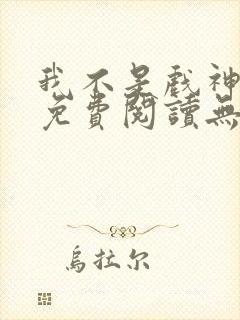 我不是戲神
免費閱讀無
烏拉尔